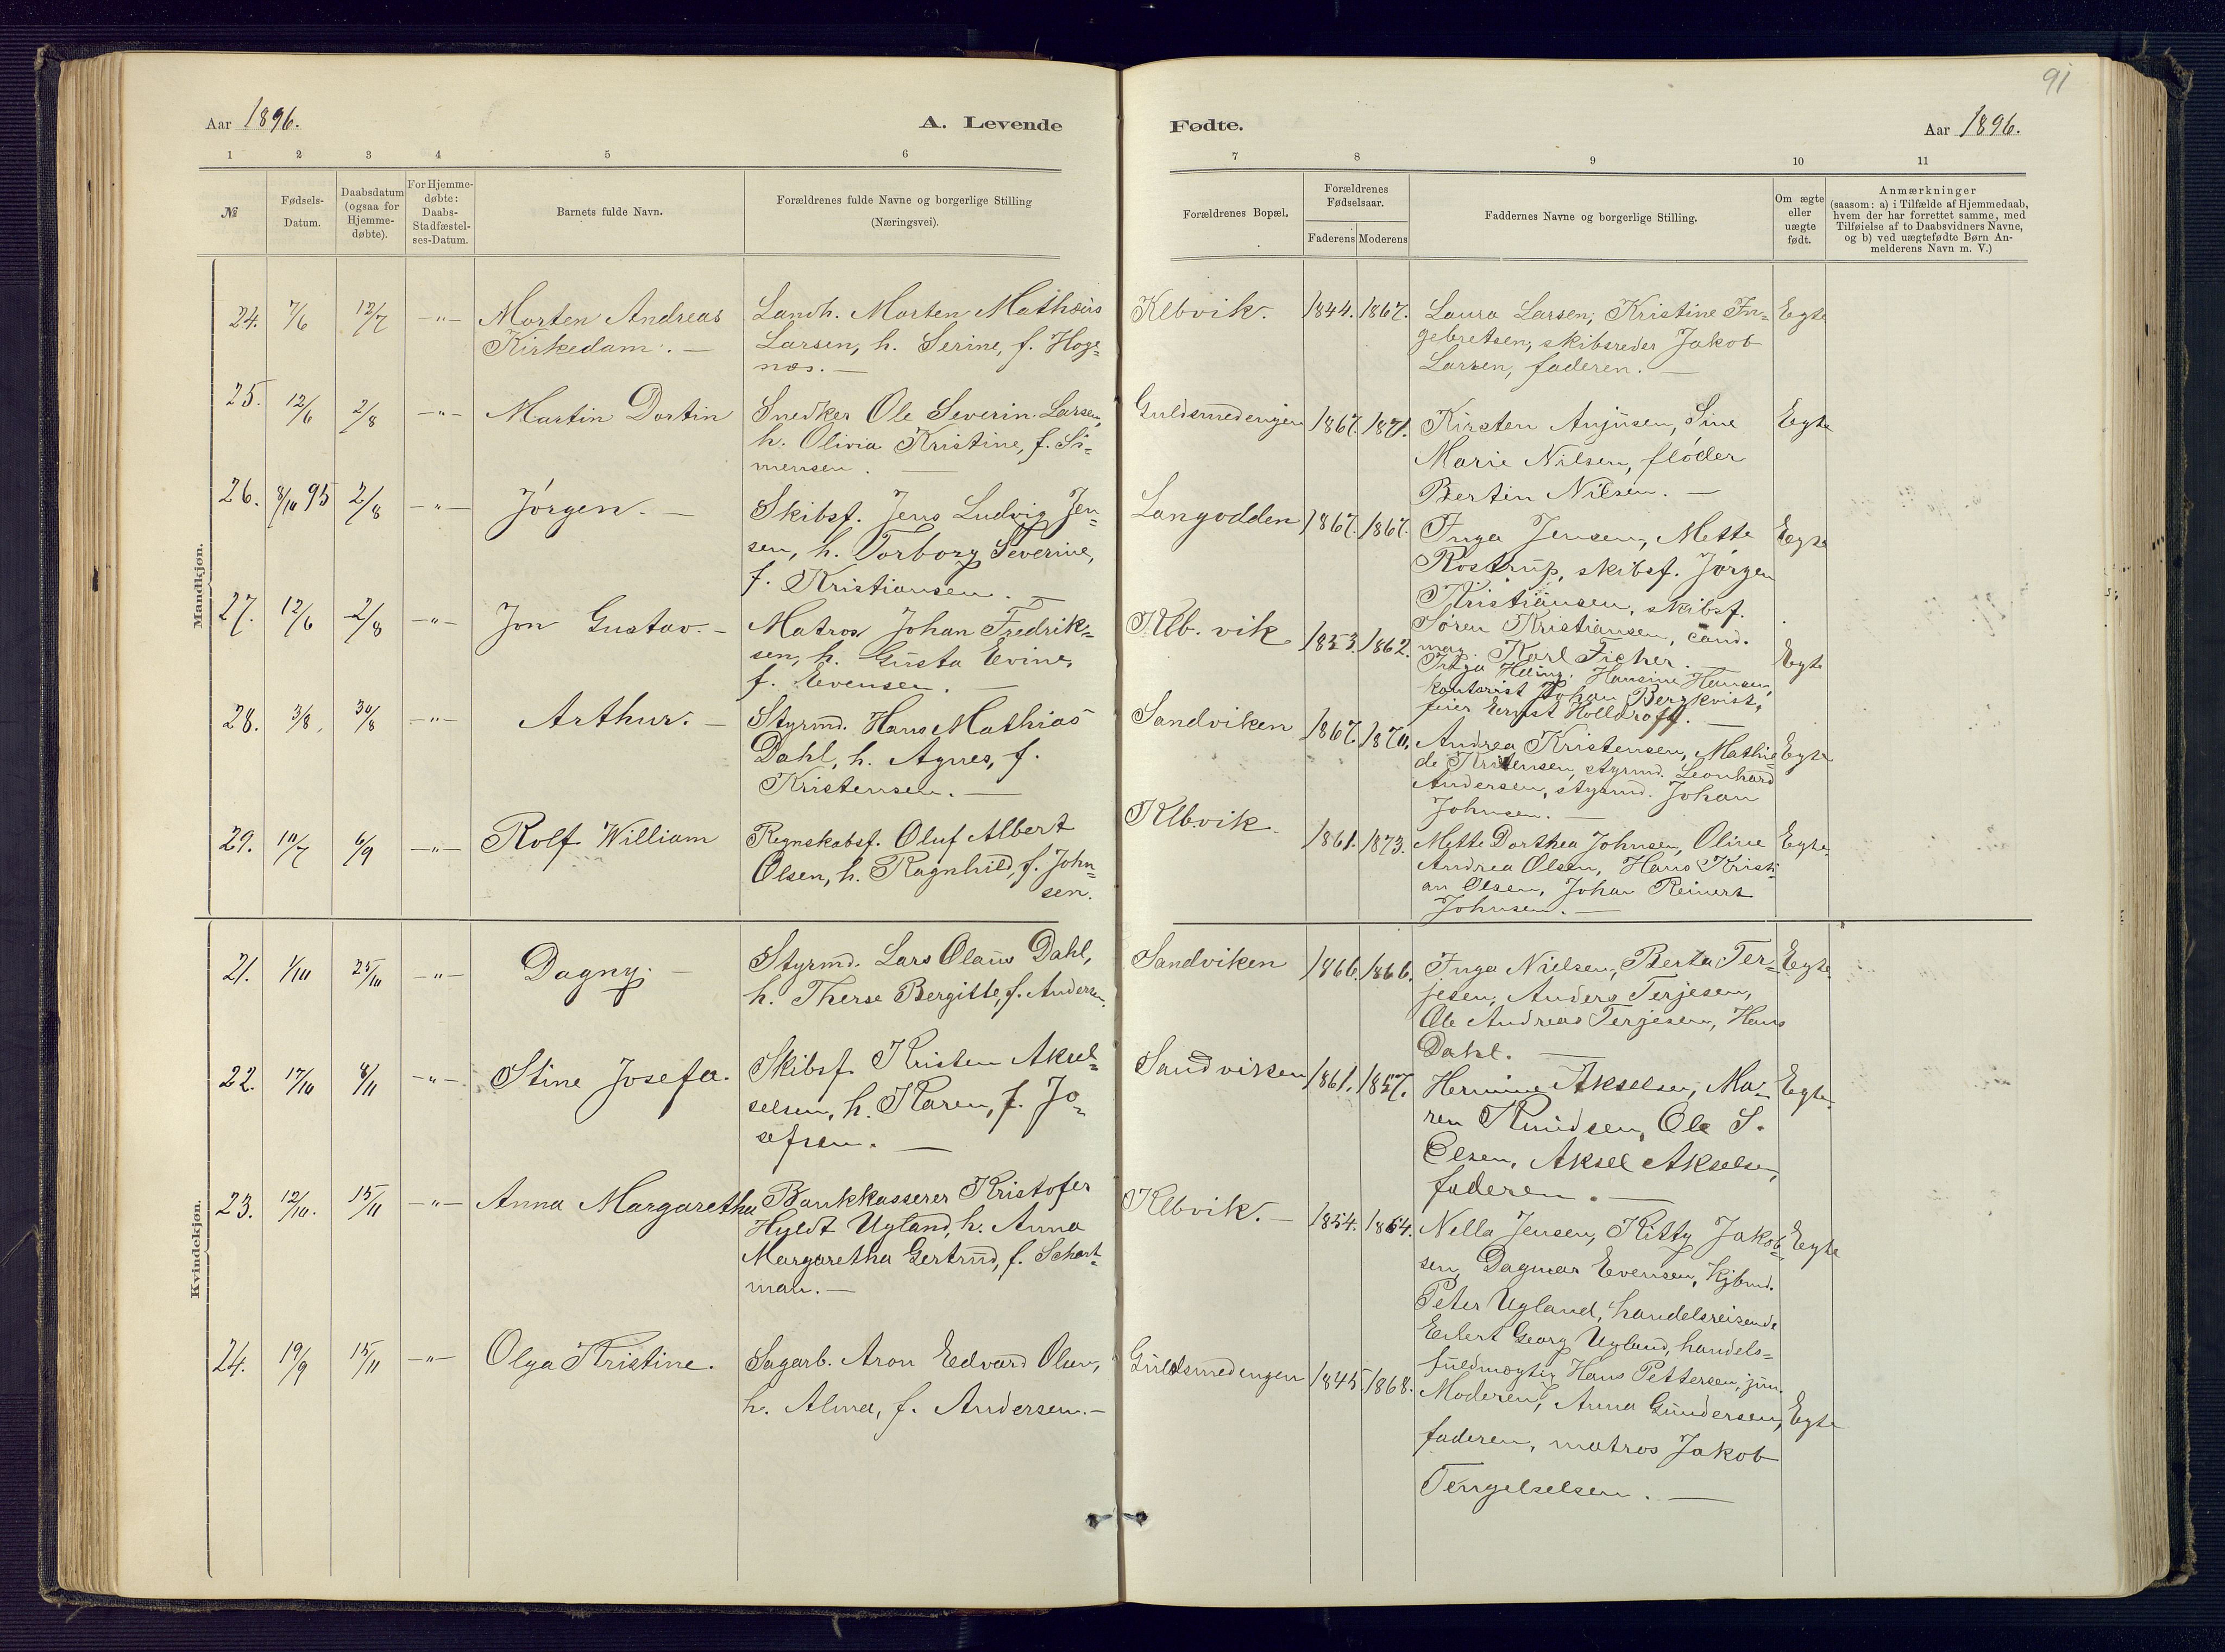 91
Aar 1896.
A. Levende
Fødte.
Aar 1896.
1 2 3 4 5 6 7 8 9 10 11
№
Fødsels-
Datum.
Daabsdatum
(ogsaa for
Hjemme-
døbte).
For Hjemme-
døbte:
Daabs-
Stadfæstel-
ses-Datum.
Barnets fulde Navn.
Forældrenes fulde Navne og borgerlige Stilling
(Næringsvei).
Forældrenes Bopæl.
Forældrenes
Fødselsaar.
Faderens Moderens
Faddernes Navne og borgerlige Stilling.
Om ægte
eller
uægte
født.
Anmærkninger
(saasom: a) i Tilfælde af Hjemmedaab,
hvem der har forrettet samme, med
Tilføielse af to Daabsvidners Navne,
og b) ved uægtefødte Børn An-
melderens Navn m. V.)
Mandkjøn.
24. 7/6 12/7 -"- Morten Andreas
Kirkedam. —
Landh. Morten Mathæus
Larsen, h. Serine, f. Hoge=
næs. —
Klbvik. 1844. 1867.
Laura Larsen, Kristine In=
gebretsen, skibsreder Jakob
Larsen, faderen. —
Egte
25. 12/6 2/8 -"- Martin Dortin
Snedker Ole Severin Larsen,
h. Olivia Kristine, f. Si-
mensen. —
Guldsmedengen 1867. 1871.
Kirsten Anjusen, Sine
Marie Nilsen, fløder
Bertin Nilsen. —
Egte
26. 8/10 95 2/8 -"- Jørgen. —
Skibsf. Jens Ludvig Jen=
sen, h. Torborg Severine,
f. Kristiansen. —
Langodden 1867. 1867.
Inga Jensen, Mette
Rostrup, skibsf. Jørgen
Kristiansen, skibsf.
Søren Kristiansen, cand.
mag. Karl Ficher.
Egte
27. 12/6 2/8 -"- Jon Gustav. —
Matros Johan Fredrik=
sen, h. Gusta Evine,
f. Evensen. —
Klb.vik 1853. 1862.
Inga Heling, Hansine Hansen,
kontorist Johan Bergkvist,
feier Ernst Holldroff. —
Egte
28. 3/8. 30/8 -"- Arthur. —
Styrmd. Hans Mathias
Dahl, h. Agnes, f.
Kristensen. —
Sandviken 1867. 1870.
Andrea Kristensen, Mathil=
de Kristensen, styrmd. Leonhard
Andersen, styrmd. Johan
Johnsen. —
Egte
29. 10/7 6/9 -"- Rolf William
Regnskabsf. Oluf Albert
Olsen, h. Ragnhild, f. John=
sen.
Klbvik. 1861. 1873.
Mette Dorthea Johnsen, Oline
Andrea Olsen, Hans Kristi
an Olsen, Johan Reinert
Johnsen. —
Egte.
Kvindekjøn.
21. 1/10 25/10 -"- Dagny. —
Styrmd. Lars Olaus Dahl,
h. Therse Bergitte, f. Andersen.
Sandviken 1866. 1866.
Inga Nielsen, Berta Ter=
jesen, Anders Terjesen,
Ole Andreas Terjesen, Hans
Dahl. —
Egte.
22. 17/10 8/11 -"- Stine Josefa.
Skibsf. Kristen Aksel=
selsen, h. Karen, f. Jo=
sefsen. —
Sandviken 1861. 1857.
Hermine Akselsen, Ma=
ren Knudsen, Ole S.
Olsen, Aksel Akselsen,
faderen. —
Egte.
23. 12/10. 15/11 -"- Anna Margaretha
Bankkasserer Kristofer
Hyldt Ugland, h. Anna
Margaretha Gertrud, f. Schart=
man. —
Klbvik. — 1854. 1864.
Nella Jensen, Kitty Jakob=
sen, Dagmar Evensen, Kjbmd.
Peter Ugland, handelsreisende
Eilert Georg Ugland, handels=
fuldmægtig Hans Pettersen, jun.
Egte
24. 19/9 15/11 -"- Olga Kristine.
Sagarb. Aron Edvard Olsen,
h. Alma, f. Andersen. —
Guldsmedengen 1845. 1868.
Moderen, Anna Gundersen,
faderen, matros Jakob
Tengelselsen. —
Egte